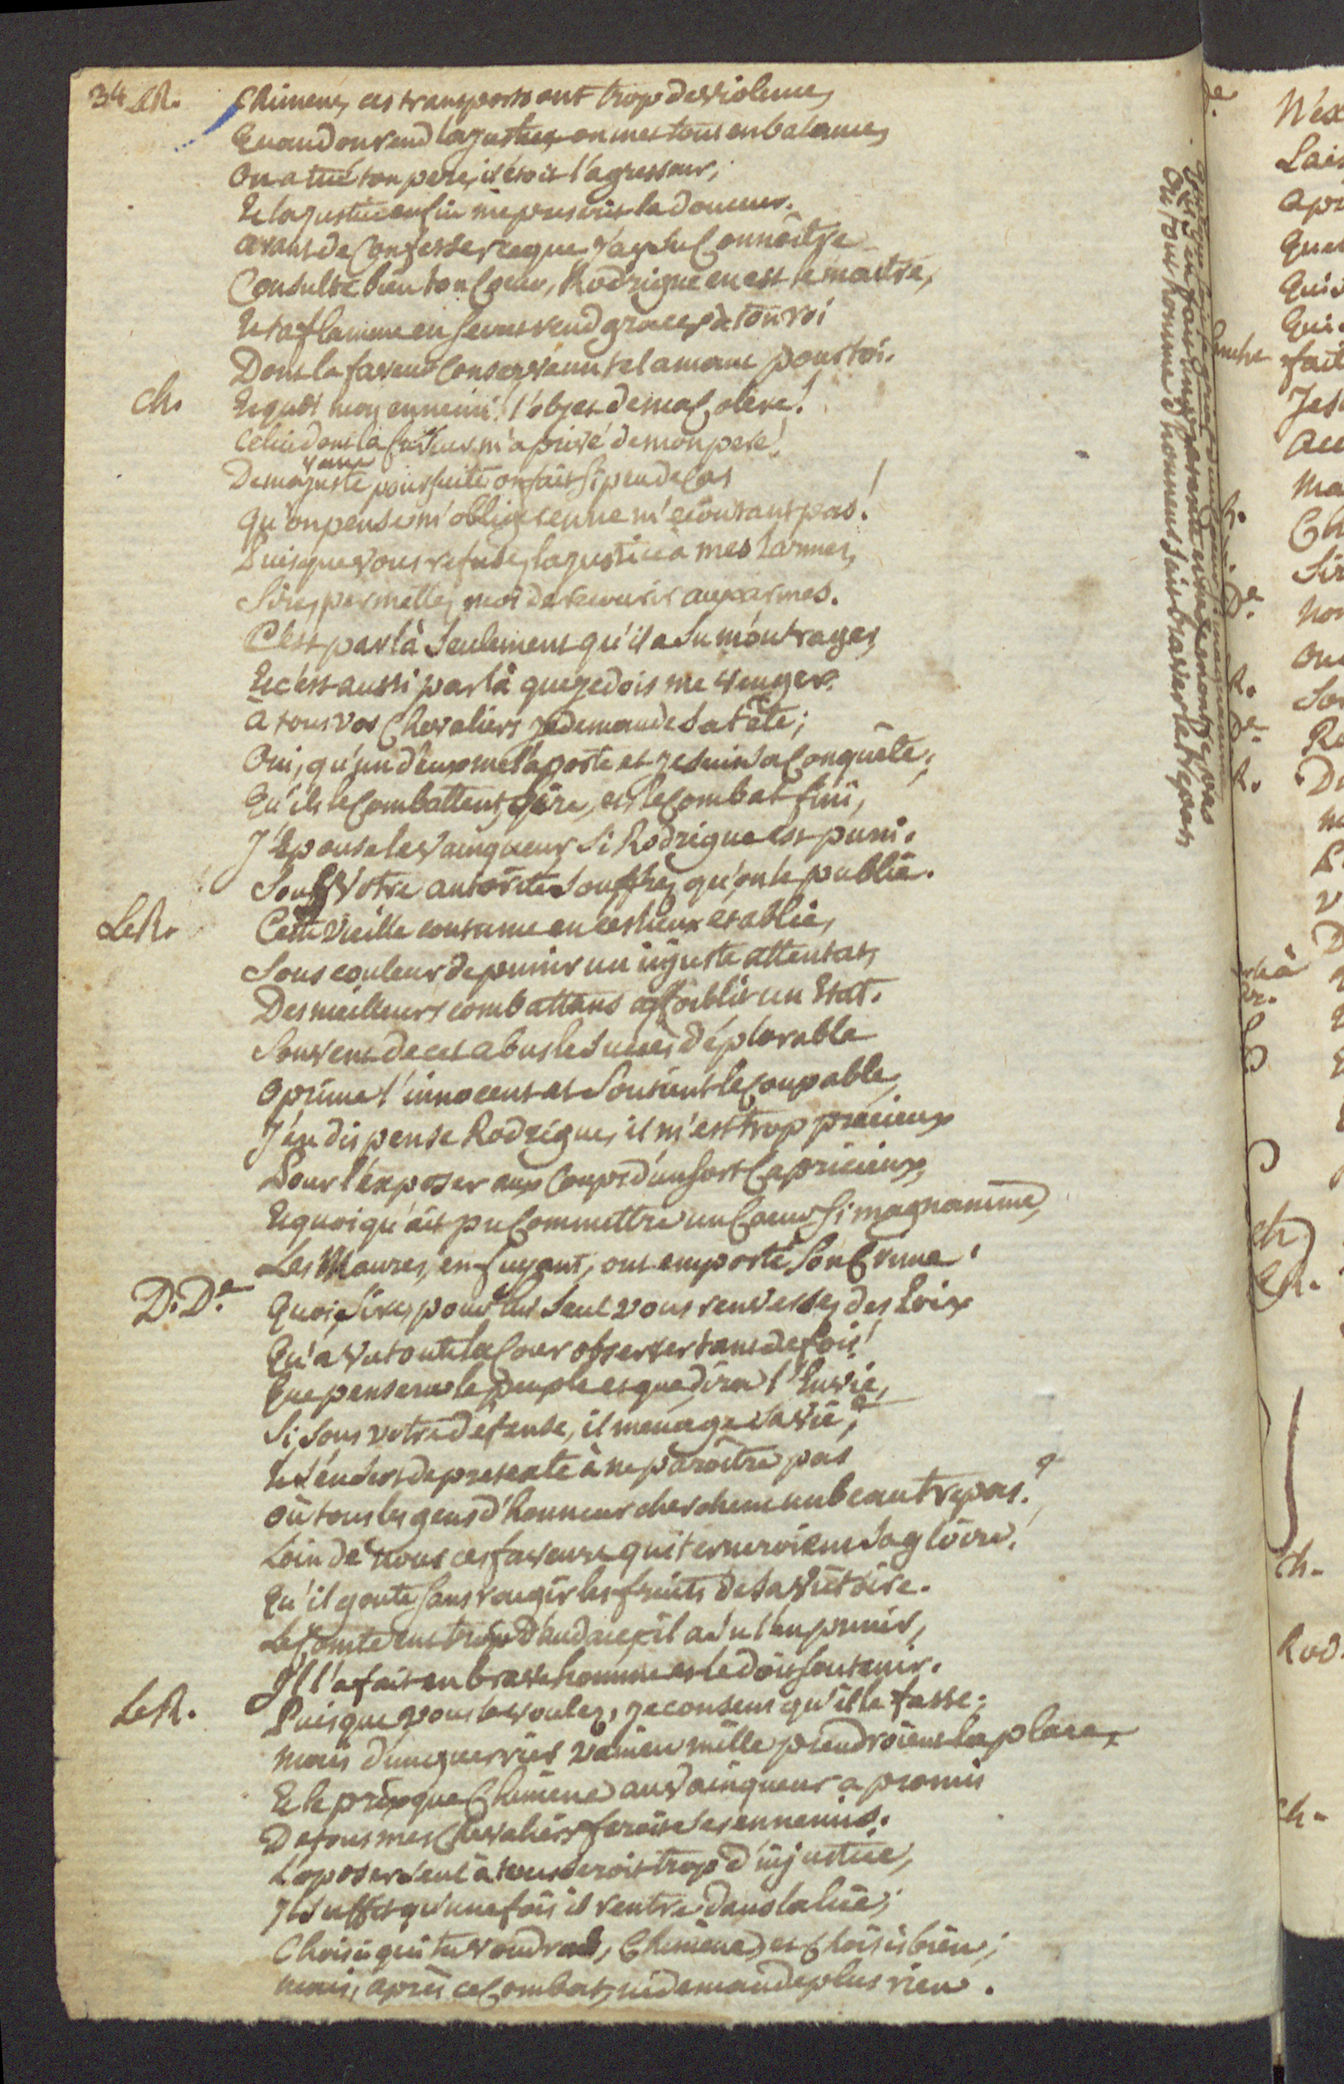 34 Le R. Chimene, ces transports ont trop de violence,
Quand on rend la justice on met tout en balance,
On a tué ton pere, il étoit l'agresseur;
Et la justice enfin me prescrit la douceur.
avant de confesser ce que j'ay su connoître
Consulte bien ton coeur, Rodrigue en est le maitre,
Et ta flamme en secret rend graces à ton roi
Dont la faveur conserve un tel amant pour toi.
Ch. Et quoi mon ennemi! l'objet de ma colere!
Celui dont la fureur m'a privé de mon pere!
De ma juste poursuite on fait si peu de cas
Qu'on pense m'obliger en ne m'écoutant pas!
Puisque vous refusez la justice à mes larmes,
Sire, permettez moi de recourir aux armes.
C'est par là seulement qu'il a su m'outrager,
Et c'est aussi par là que je dois me venger.
à tous vos Chevaliers je demande sa tête;
Oui, qu'un d'eux me l'aporte et je suis sa conquête;
Qu'ils le combattent, Sire, et le combat fini,
J'épouse le vainqueur si Rodrigue est puni.
Sous votre autorité souffrez qu'on le publie.
Le R. Cette vieille coutume en ces lieux etablie,
Sous couleur de punir un injuste attentat,
Des meilleurs combattans affoiblit un Etat.
Souvent de cet abus le succès déplorable
Oprime l'innocent et soutient le coupable,
J'en dispense Rodrigue, il m'est trop précieux
Pour l'exposer aux coups d'un sort capricieux,
Et quoi qu'ait pu commettre un coeur si magnanime,
Les Maures, en fuyant, ont emporté son crime.
D. De. Quoi, Sire, pour lui seul vous renversez des loix
Qu'a vu toute la cour observer tant de fois!
Que pensera le peuple et que dira l'Envie,
Si, sous votre défense, il menage sa vie,
Et s'en sert de pretexte à ne paroître pas
Où tous les gens d'honneur cherchent un beau trepas?
Loin de nous ces faveurs qui terniroient sa gloire.
Qu'il goute sans rougir les fruits de sa victoire.
Le Comte eut trop d'audace, il a su l'en punir,
Il l'a fait en brave homme et le doit soutenir.
Le R. Puisque vous le voulez, je consens qu'il le fasse;
mais d'un guerrier vaincu mille prendroient la place,
Et le prix que Chimene au vainqueur a promis
De tous mes Chevaliers feroit ses ennemis.
L'oposer seul à tous seroit trop d'injustice,
Il suffit qu'une fois il rentre dans la lice;
Choisis qui tu voudras, Chimene, et choisis bien;
mais, après ce combat, ne demande plus rien.
Où tout homme d'honneur sait braver le trépas